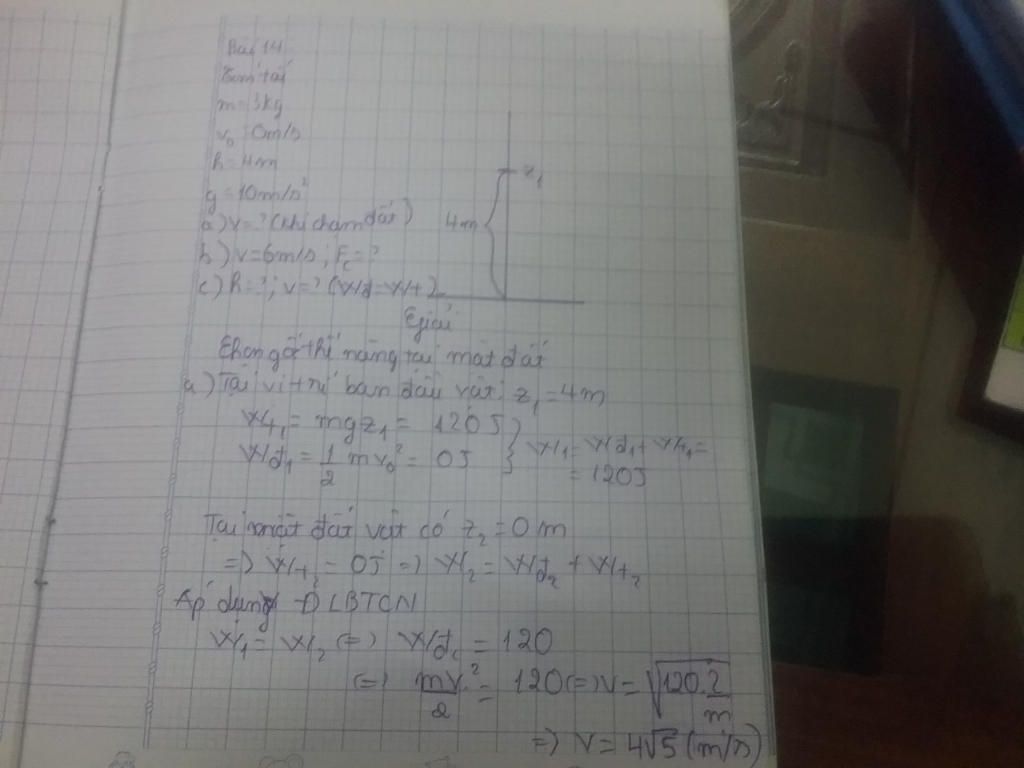 Bài 14
Tóm tắt
m = 3kg
v₀ = 0m/s
h = 4m
g = 10m/s²
a) v = ? (khi chạm đất)
b) v = 6m/s ; Fc = ?
c) h = ? ; v = ? (Wđ = Wt)
z₁
4m
Giải
Chọn gốc thế năng tại mặt đất
a) Tại vị trí ban đầu vật: z₁ = 4m
Wt₁ = mgz₁ = 120J
Wđ₁ = 1/2 mv₀² = 0J } W₁ = Wđ₁ + Wt₁ =
= 120J
Tại mặt đất vật có z₂ = 0 m
=> Wt₂ = 0J => W₂ = Wđ₂ + Wt₂
Áp dụng ĐLBTCN
W₁ = W₂ (=) Wđ₂ = 120
(=) mv²/2 = 120 (=) v = √(120.2/m)
=> v = 4√5 (m/s)